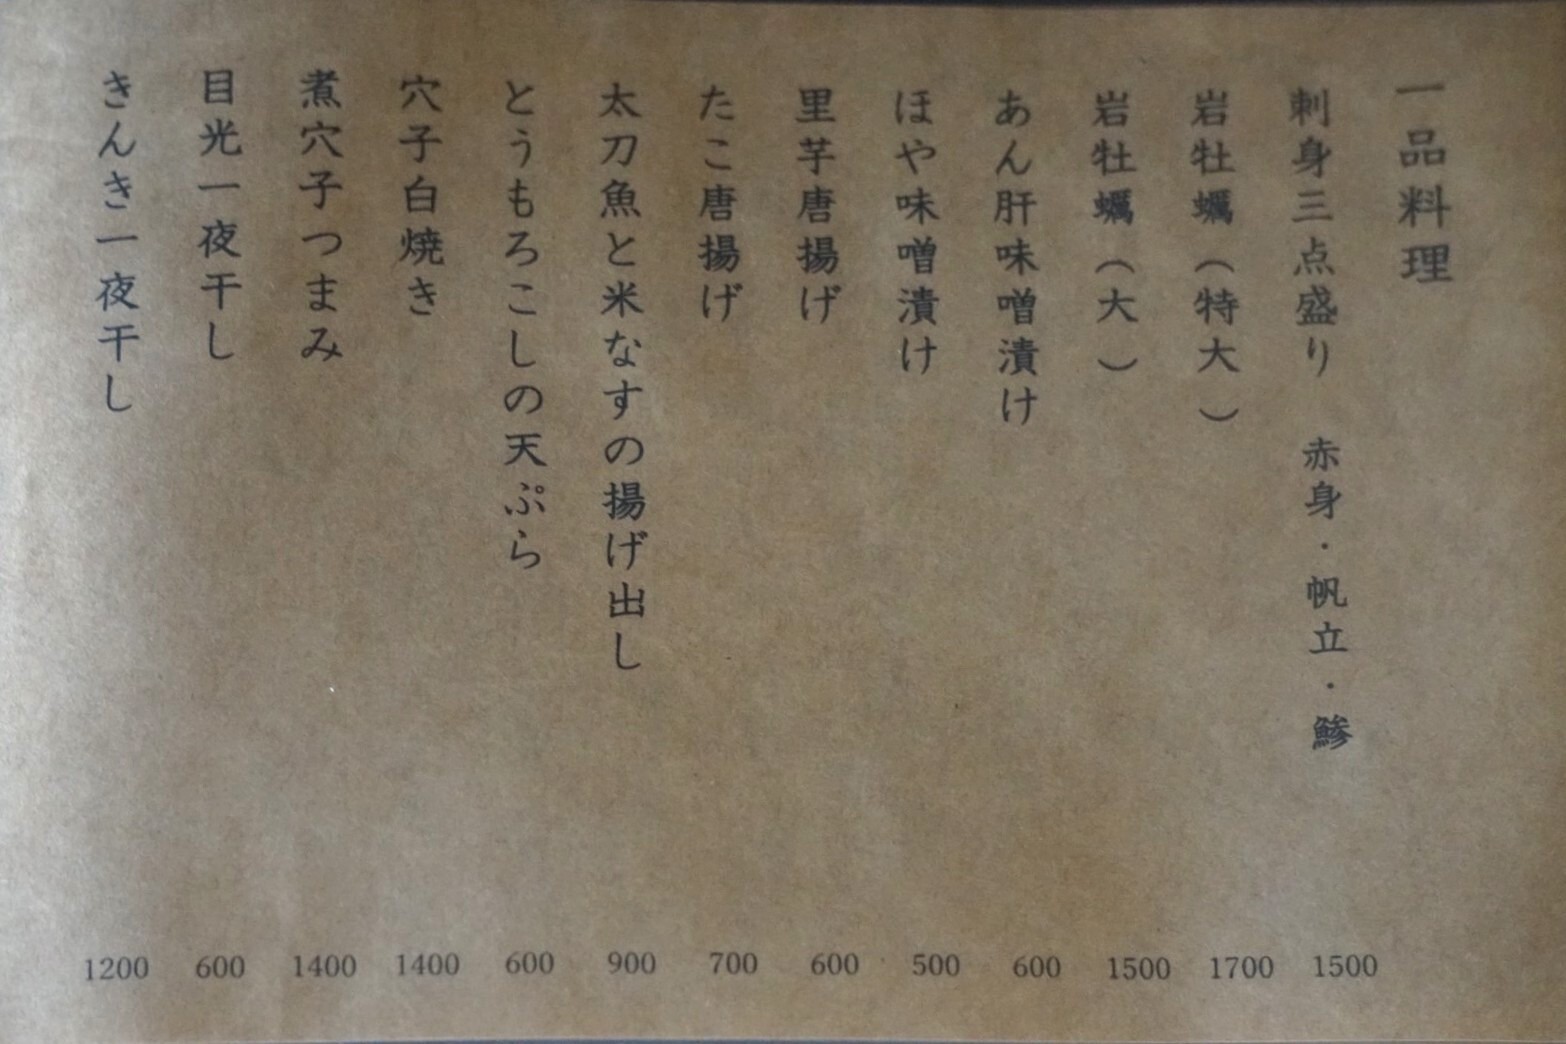 一品料理
刺身三点盛り　赤身・帆立・鯵 1500
岩牡蠣（特大） 1700
岩牡蠣（大） 1500
あん肝味噌漬け 600
ほや味噌漬け 500
里芋唐揚げ 600
たこ唐揚げ 700
太刀魚と米なすの揚げ出し 900
とうもろこしの天ぷら 600
穴子白焼き 1400
煮穴子つまみ 1400
目光一夜干し 600
きんき一夜干し 1200